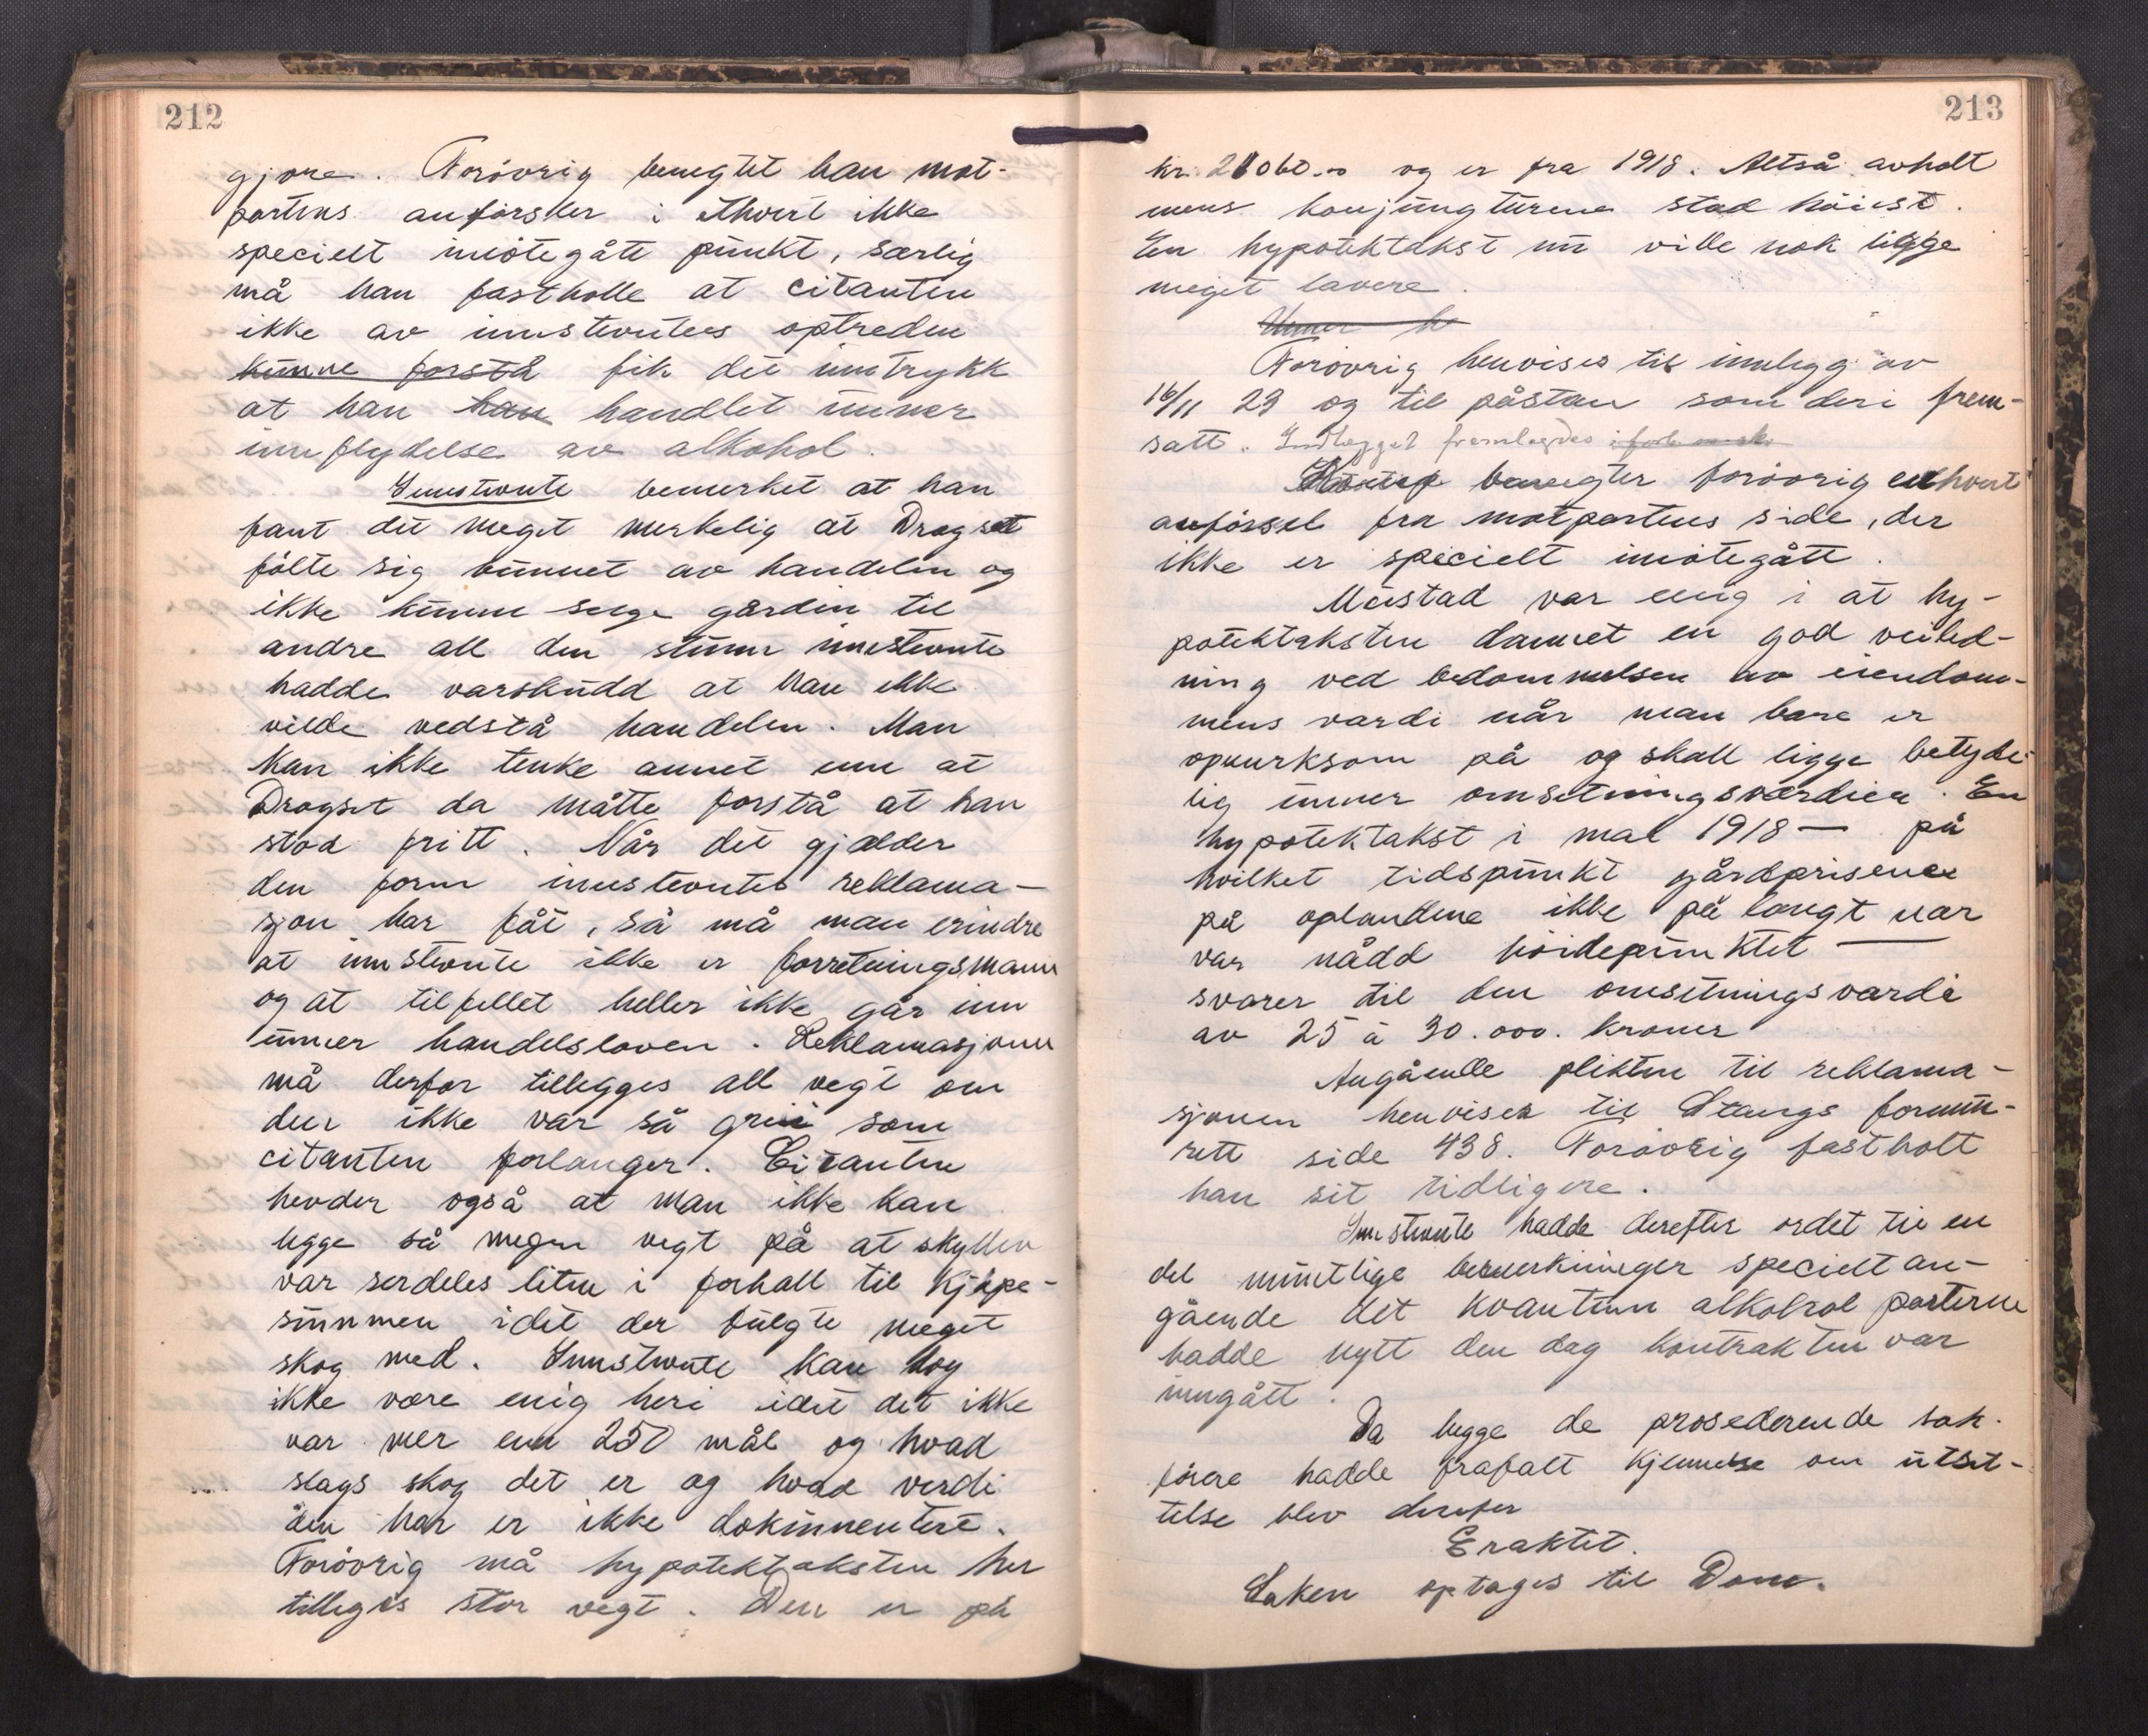 212
gjøre. Forøvrig benegtet han mot-
partens anførsler i ethvert ikke
specielt imøtegått punkt, særlig
må han fastholde at citanten
ikke av innstevntes optreden
kunne forstå fik det inntrykk
at han han handlet unner
innflydelse av alkohol.
Innstevnte bemerket at han
fant det meget merkelig at Dragset
følte sig bunnet av handelen og
ikke kunne selge gården til
andre all den stunn innstevnte
hadde varskudd at han ikke
vilde vedstå handelen. Man
kan ikke tenke annet enn at
Dragset da måtte forstå at han
stod fritt. Når det gjælder
den form innstevntes reklama-
sjon har fåt, så må man erindre
at innstevnte ikke er forretningsmann
og at tilfellet heller ikke går inn
unner handelsloven. Reklamasjonen
må derfor tillegges all vegt om
den ikke var så grei som
citanten forlanger. Citanten
hevder også at man ikke kan
legge så megen vegt på at skylden
var serdeles liten i forhall til kjøpe-
summen idet der fulgte meget
skog med. Innstevnte kan dog
ikke være enig heri idet det ikke
var mer enn 250 mål og hvad
slags skog det er og hvad verdi
den har er ikke dokumentert.
Forøvrig må hypotektaksten her
tilleges stor vegt. Den er på
213
kr. 21060.00 og er fra 1918. Altså avholt
mens konjungturene stod høiest.
En hypotektakst nu ville nok ligge
meget lavere.
Forøvrig henvises til innlegg av
16/11 23 og til påstan som deri frem-
satt. Indlegget fremlegdes
benegter forøvrig ethvert
anførsel fra motpartens side, der
ikke er specielt imøtegått.
Meistad var enig i at hy-
potektaksten dannet en god veiled-
ning ved bedømmelsen av eiendom-
mens verdi når man bare er
opmerksom på og skall ligge betyde-
lig unner omsetningsværdien. En
hypotektakst i mai 1918 — på
hvilket tidspunkt gårdprisene
på oplandene ikke på langt nær
var nådd høidepunktet —
svarer til den omsetningsværdi
av 25 à 30.000. kroner
Angående plikten til reklama-
sjonen henviser til Stangs formu-
rett side 438. Forøvrig fastholt
han sit tidligere.
Innstevnte hadde derefter ordet til en
del muntlige bemerkninger specielt an-
gående det kvantum alkohol partene
hadde nytt den dag kontrakten var
inngått.
Da begge de prosederende sak-
førere hadde frafalt kjennelse om utset-
telse blev derefter
Eraktet.
Saken optages til Dom.